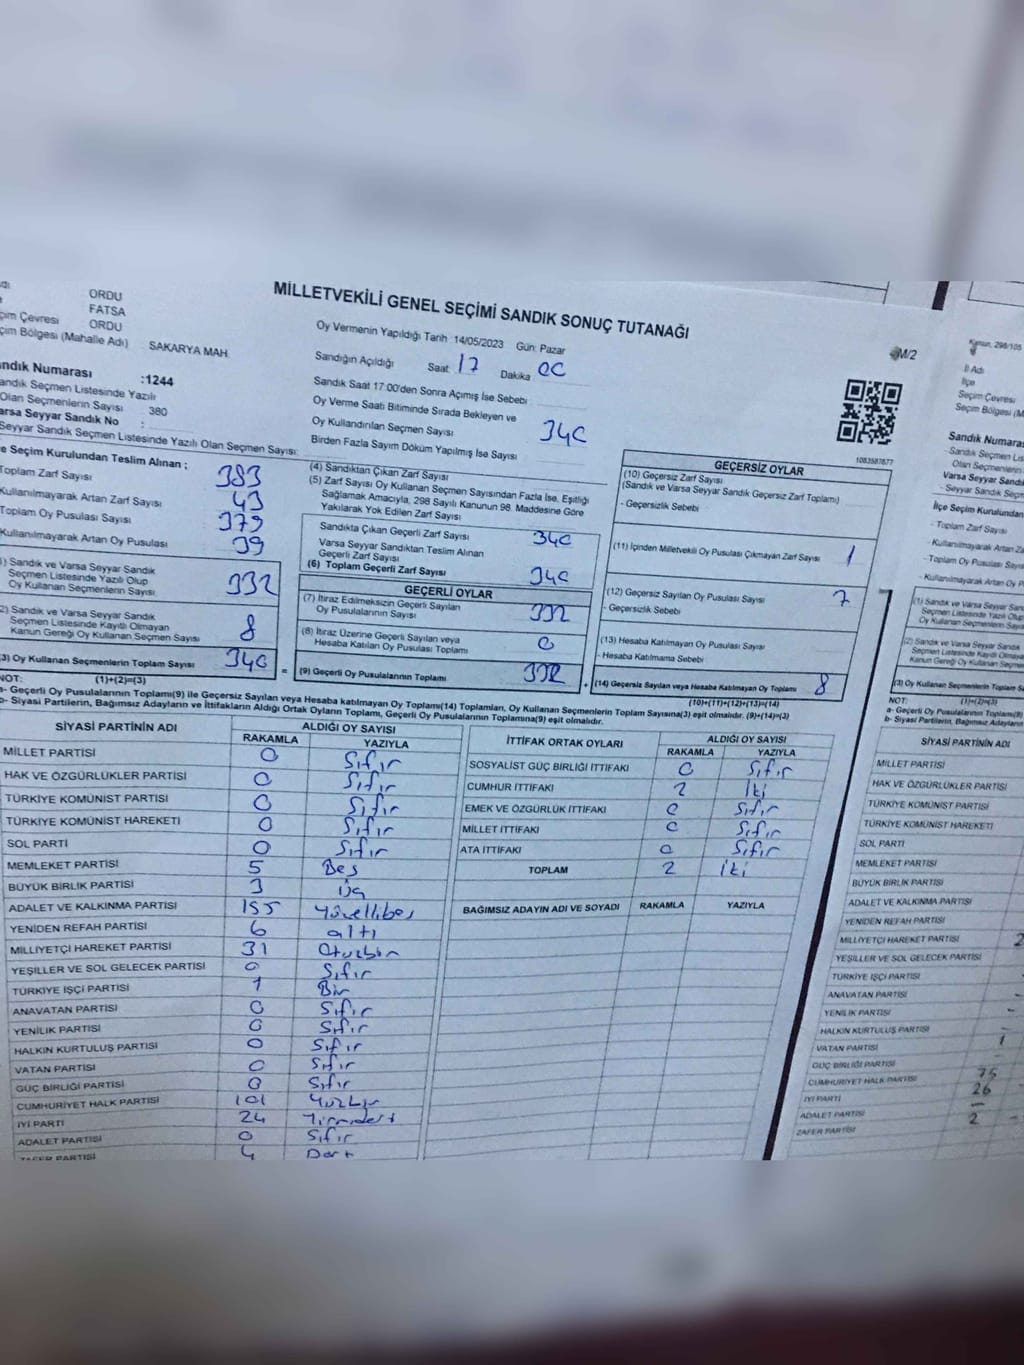 MİLLETVEKİLİ GENEL SEÇİMİ SANDIK SONUÇ TUTANAĞI
ORDU
FATSA
ORDU
Bölgesi (Mahalle Adı) SAKARYA MAH.
Oy Vermenin Yapıldığı Tarih :14/05/2023 Gün: Pazar
Sandığın Açıldığı Saat 17 Dakika 00
Sandık Saat 17:00'den Sonra Açımış İse Sebebi
Oy Verme Saati Bitiminde Sırada Bekleyen ve
Oy Kullandırılan Seçmen Sayısı 340
Birden Fazla Sayım Döküm Yapılmış İse Sayısı
M/2
Numarası :1244
Seçmen Listesinde Yazılı
Olan Seçmenlerin Sayısı 380
Seyyar Sandık No :
Seyyar Sandık Seçmen Listesinde Yazılı Olan Seçmen Sayısı:
Seçim Kurulundan Teslim Alınan ;
Toplam Zarf Sayısı 383
Kullanılmayarak Artan Zarf Sayısı 43
Toplam Oy Pusulası Sayısı 379
Kullanılmayarak Artan Oy Pusulası 39
Sandık ve Varsa Seyyar Sandık
Seçmen Listesinde Yazılı Olup
Oy Kullanan Seçmenlerin Sayısı 332
Sandık ve Varsa Seyyar Sandık
Seçmen Listesinde Kayıtlı Olmayan
Kanun Gereği Oy Kullanan Seçmen Sayısı 8
(3) Oy Kullanan Seçmenlerin Toplam Sayısı 340
(1)+(2)=(3)
(4) Sandıktan Çıkan Zarf Sayısı
(5) Zarf Sayısı Oy Kullanan Seçmen Sayısından Fazla İse, Eşitliği
Sağlamak Amacıyla, 298 Sayılı Kanunun 98. Maddesine Göre
Yakılarak Yok Edilen Zarf Sayısı
Sandıkta Çıkan Geçerli Zarf Sayısı 340
Varsa Seyyar Sandıktan Teslim Alınan
Geçerli Zarf Sayısı
(6) Toplam Geçerli Zarf Sayısı 340
GEÇERLİ OYLAR
(7) İtiraz Edilmeksizin Geçerli Sayılan
Oy Pusulalarının Sayısı 332
(8) İtiraz Üzerine Geçerli Sayılan veya
Hesaba Katılan Oy Pusulası Toplamı 0
= (9) Geçerli Oy Pusulalarının Toplamı 332 +
1083587877
GEÇERSİZ OYLAR
(10) Geçersiz Zarf Sayısı
(Sandık ve Varsa Seyyar Sandık Geçersiz Zarf Toplamı)
- Geçersizlik Sebebi
(11) İçinden Milletvekili Oy Pusulası Çıkmayan Zarf Sayısı 1
(12) Geçersiz Sayılan Oy Pusulası Sayısı 7
- Geçersizlik Sebebi
(13) Hesaba Katılmayan Oy Pusulası Sayısı
- Hesaba Katılmama Sebebi
(14) Geçersiz Sayılan veya Hesaba Katılmayan Oy Toplamı 8
(10)+(11)+(12)+(13)=(14)
NOT:
a- Geçerli Oy Pusulalarının Toplamı(9) ile Geçersiz Sayılan veya Hesaba katılmayan Oy Toplamı(14) Toplamları, Oy Kullanan Seçmenlerin Toplam Sayısına(3) eşit olmalıdır. (9)+(14)=(3)
b- Siyasi Partilerin, Bağımsız Adayların ve İttifakların Aldığı Ortak Oyların Toplamı, Geçerli Oy Pusulalarının Toplamına(9) eşit olmalıdır.
SİYASİ PARTİNİN ADI ALDIĞI OY SAYISI
RAKAMLA YAZIYLA
MİLLET PARTİSİ 0 Sıfır
HAK VE ÖZGÜRLÜKLER PARTİSİ 0 Sıfır
TÜRKİYE KOMÜNİST PARTİSİ 0 Sıfır
TÜRKİYE KOMÜNİST HAREKETİ 0 Sıfır
SOL PARTİ 0 Sıfır
MEMLEKET PARTİSİ 5 Beş
BÜYÜK BİRLİK PARTİSİ 3 Üç
ADALET VE KALKINMA PARTİSİ 155 Yüzellibeş
YENİDEN REFAH PARTİSİ 6 altı
MİLLİYETÇİ HAREKET PARTİSİ 31 Otuzbir
YEŞİLLER VE SOL GELECEK PARTİSİ 0 Sıfır
TÜRKİYE İŞÇİ PARTİSİ 1 Bir
ANAVATAN PARTİSİ 0 Sıfır
YENİLİK PARTİSİ 0 Sıfır
HALKIN KURTULUŞ PARTİSİ 0 Sıfır
VATAN PARTİSİ 0 Sıfır
GÜÇ BİRLİĞİ PARTİSİ 0 Sıfır
CUMHURİYET HALK PARTİSİ 101 Yüzbir
İYİ PARTİ 24 Yirmidört
ADALET PARTİSİ 0 Sıfır
ZAFER PARTİSİ 4 Dört
İTTİFAK ORTAK OYLARI ALDIĞI OY SAYISI
RAKAMLA YAZIYLA
SOSYALİST GÜÇ BİRLİĞİ İTTİFAKI 0 Sıfır
CUMHUR İTTİFAKI 2 İki
EMEK VE ÖZGÜRLÜK İTTİFAKI 0 Sıfır
MİLLET İTTİFAKI 0 Sıfır
ATA İTTİFAKI 0 Sıfır
TOPLAM 2 İki
BAĞIMSIZ ADAYIN ADI VE SOYADI RAKAMLA YAZIYLA
298/105
İl Adı
İlçe
Seçim Çevresi
Seçim Bölgesi
Sandık
- Sandık
Olan Seçmenlerin
Varsa Seyyar
- Seyyar Sandık
İlçe Seçim Kurulundan
- Toplam Zarf Sayısı
- Kullanılmayarak Artan
- Toplam Oy Pusulası
- Kullanılmayarak Artan Oy
(1) Sandık ve Varsa Seyyar
Seçmen Listesinde Yazılı
Oy Kullanan Seçmenlerin
(2) Sandık ve Varsa Seyyar
Seçmen Listesinde Kayıtlı
Kanun Gereği Oy Kullanan
(3) Oy Kullanan Seçmenlerin Toplam
NOT:
a- Geçerli Oy Pusulalarının
b- Siyasi Partilerin, Bağımsız
SİYASİ PARTİNİN ADI
MİLLET PARTİSİ
HAK VE ÖZGÜRLÜKLER PARTİSİ
TÜRKİYE KOMÜNİST PARTİSİ
TÜRKİYE KOMÜNİST HAREKETİ
SOL PARTİ
MEMLEKET PARTİSİ
BÜYÜK BİRLİK PARTİSİ
ADALET VE KALKINMA PARTİSİ
YENİDEN REFAH PARTİSİ
MİLLİYETÇİ HAREKET PARTİSİ
YEŞİLLER VE SOL GELECEK PARTİSİ
TÜRKİYE İŞÇİ PARTİSİ
ANAVATAN PARTİSİ
YENİLİK PARTİSİ
HALKIN KURTULUŞ PARTİSİ
VATAN PARTİSİ 1
GÜÇ BİRLİĞİ PARTİSİ
CUMHURİYET HALK PARTİSİ 75
İYİ PARTİ 26
ADALET PARTİSİ
ZAFER PARTİSİ 2